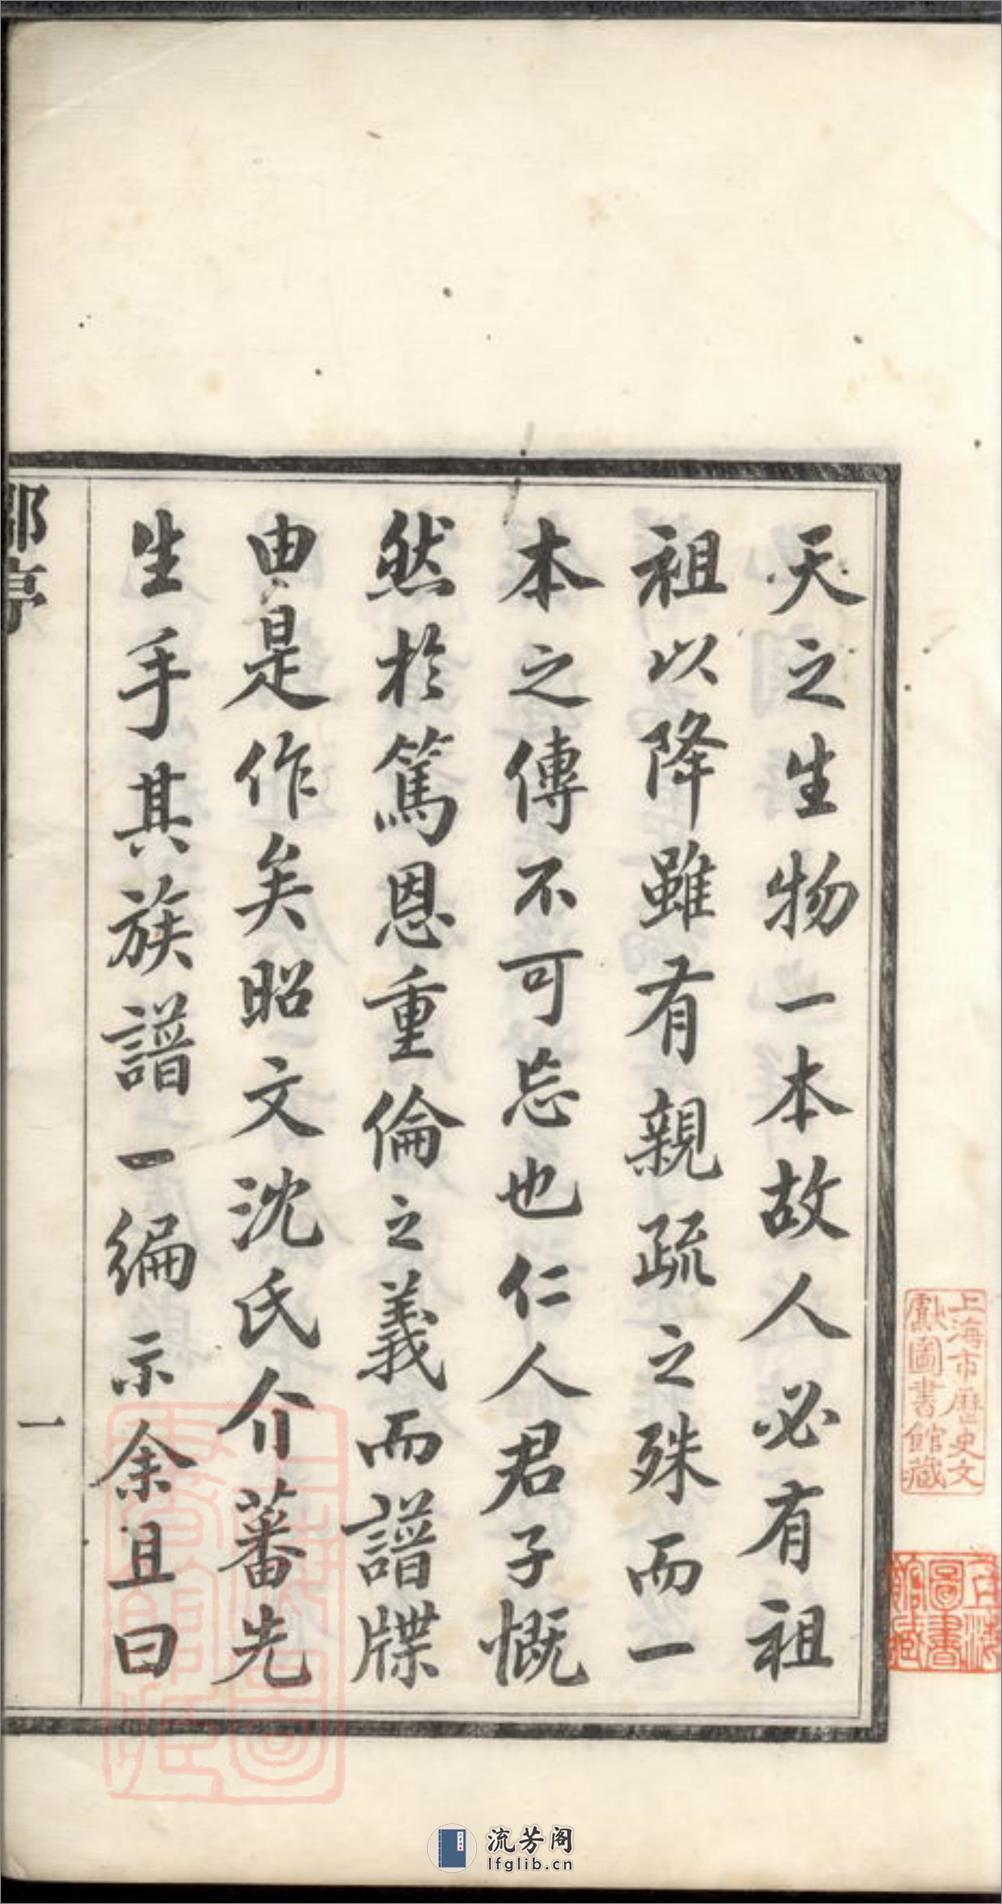 天之生物一本故人必有祖
祖以降雖有親疏之殊而一
本之傳不可忘也仁人君子慨
然於篤恩重倫之義而譜牒
由是作矣昭文沈氏介蕃先
生手其族譜一編示余且曰
亭
一
上海市歷史文
獻圖書館藏
上海
圖書
館藏
流芳阁
lfglib.cn